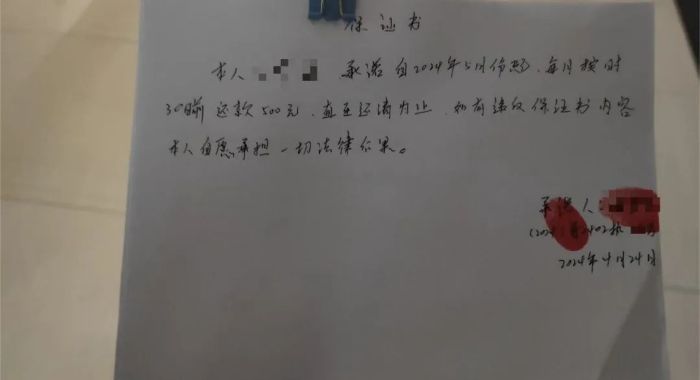 保证书
本人 承诺自2024年5月份起、每月按时
30日前还款500元、直至还清为止、如有违反保证书内容
本人自愿承担一切法律后果。
承诺人:
(2024) 2402执
2024年4月24日